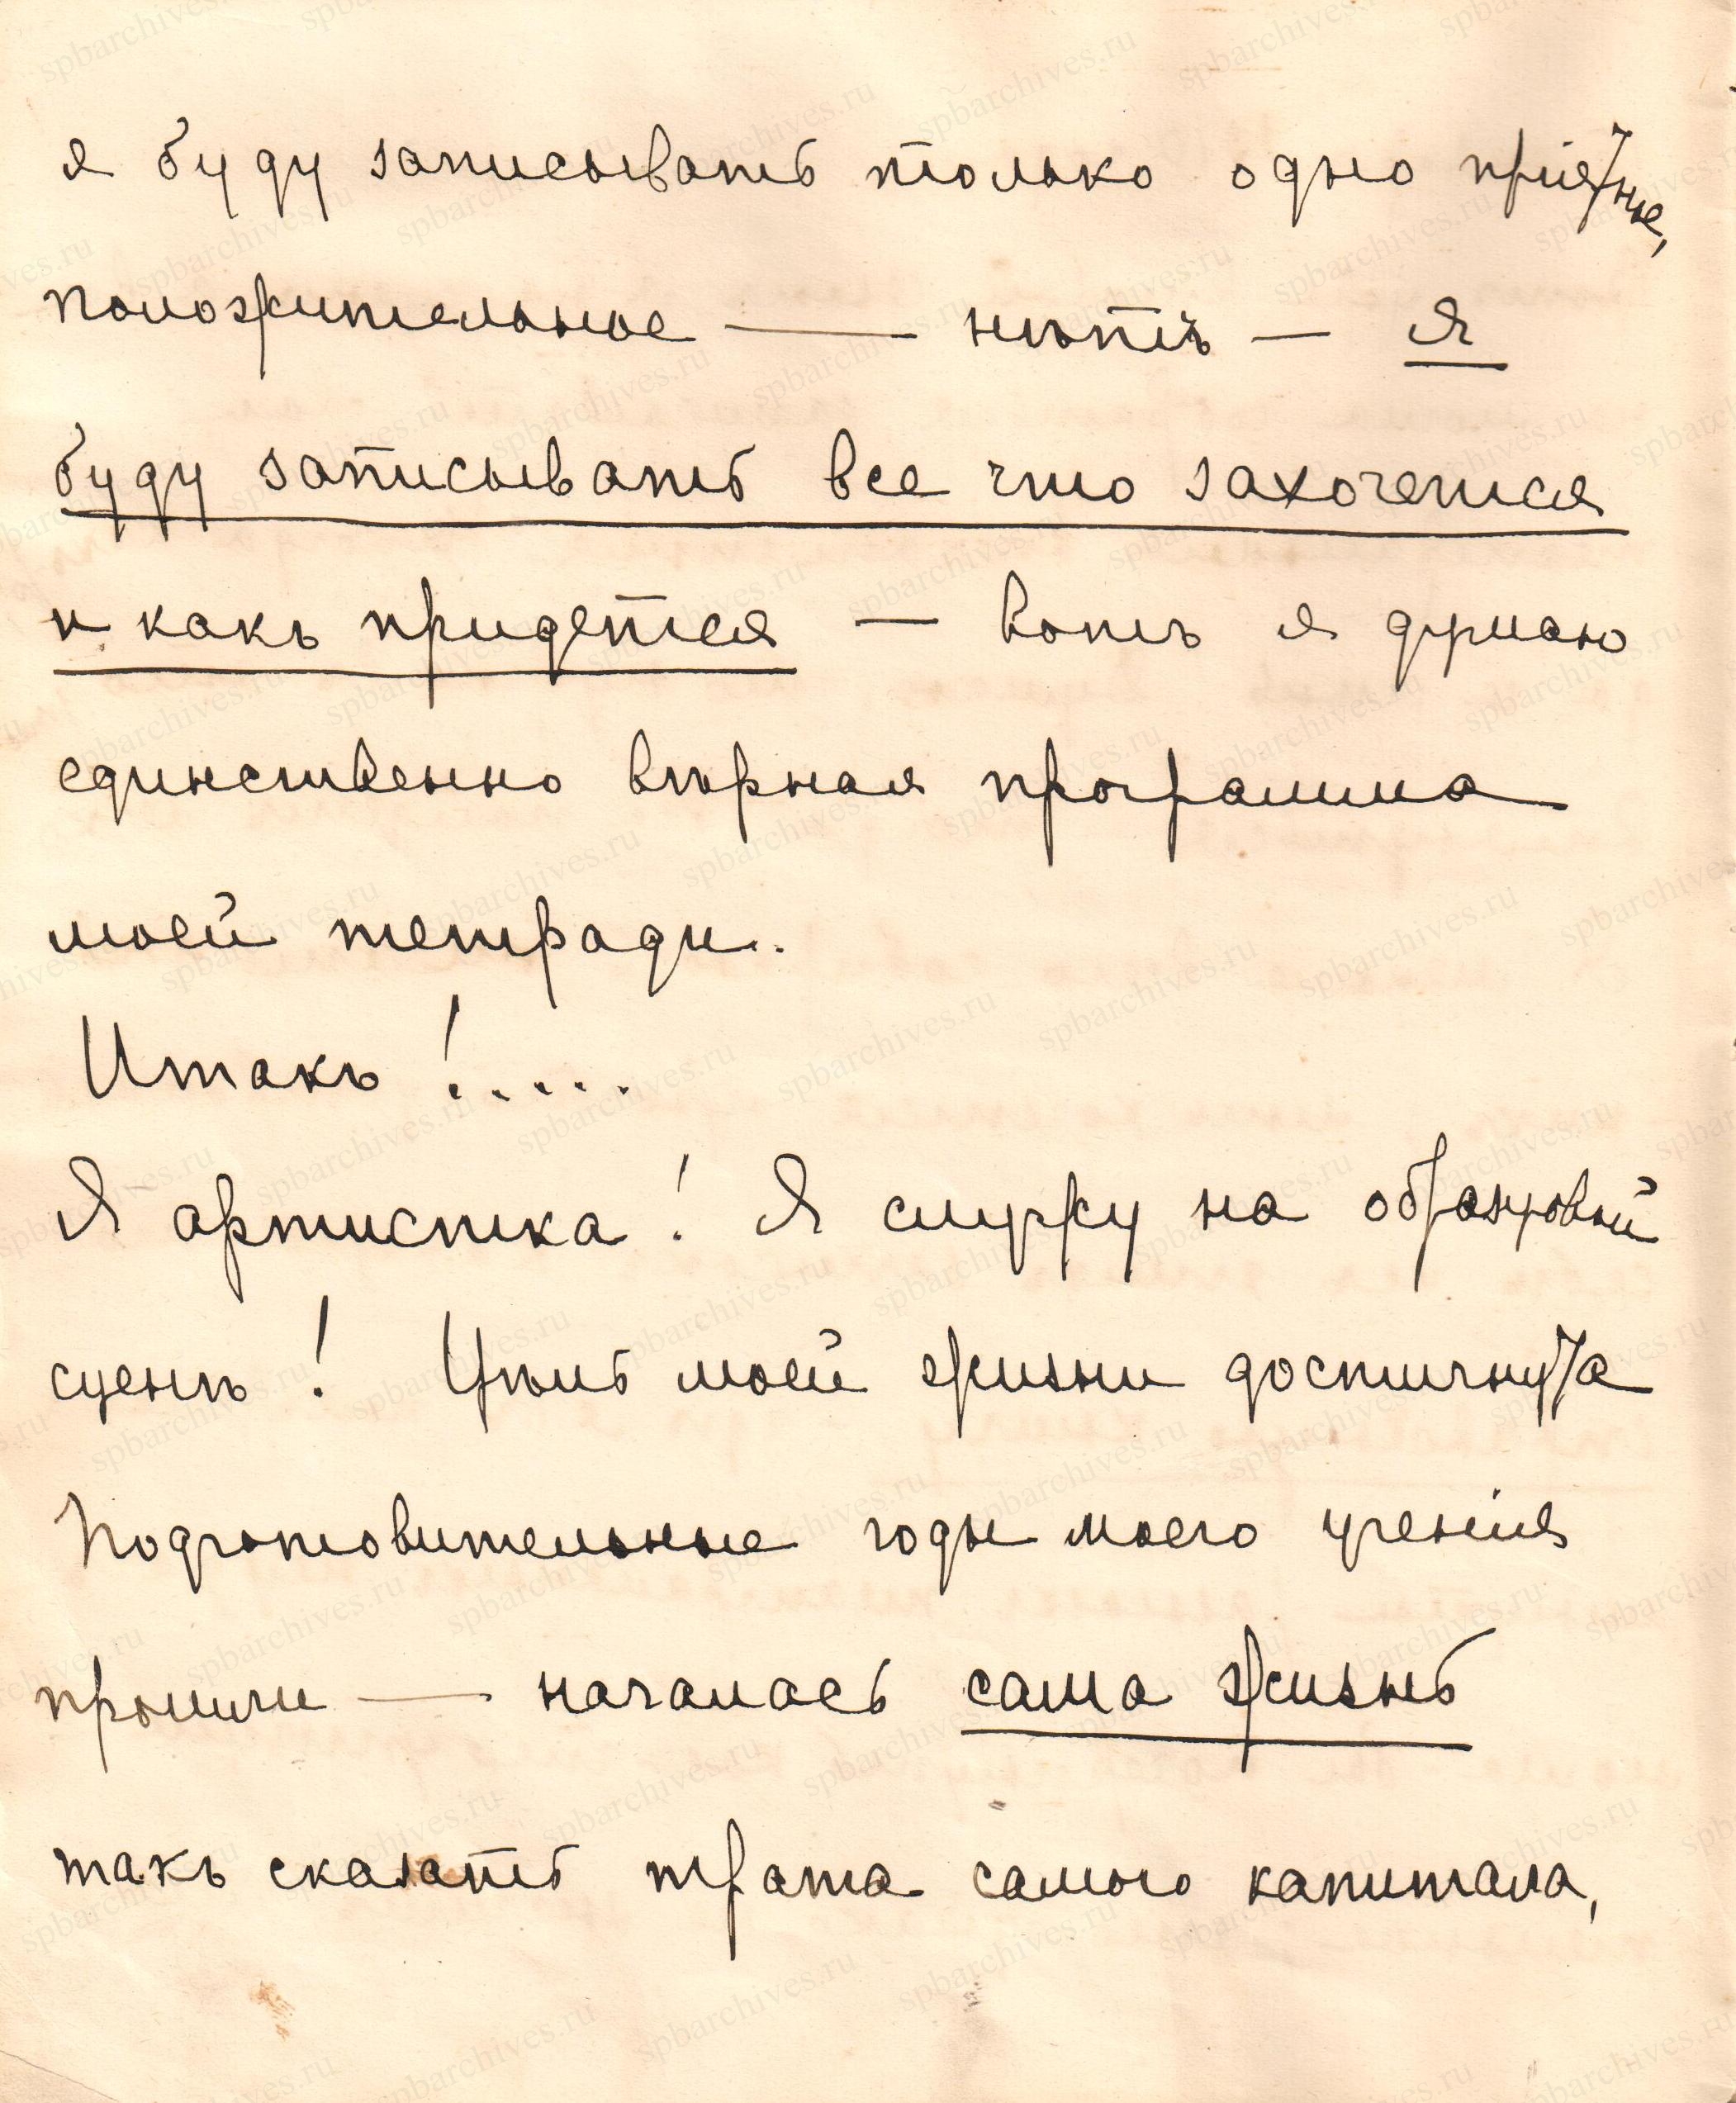 я буду записывать только одно пріятное,
положительное — нѣтъ — я
буду записывать все что захочется
и какъ придется — вотъ я думаю
единственно вѣрная программа
моей тетради..
Итакъ !.....
Я артистка! Я служу на образцовой
сценѣ! Цѣль моей жизни достигнута
Подготовительные годы моего ученія
прошли — началась сама жизнь
такъ сказать трата самого капитала,